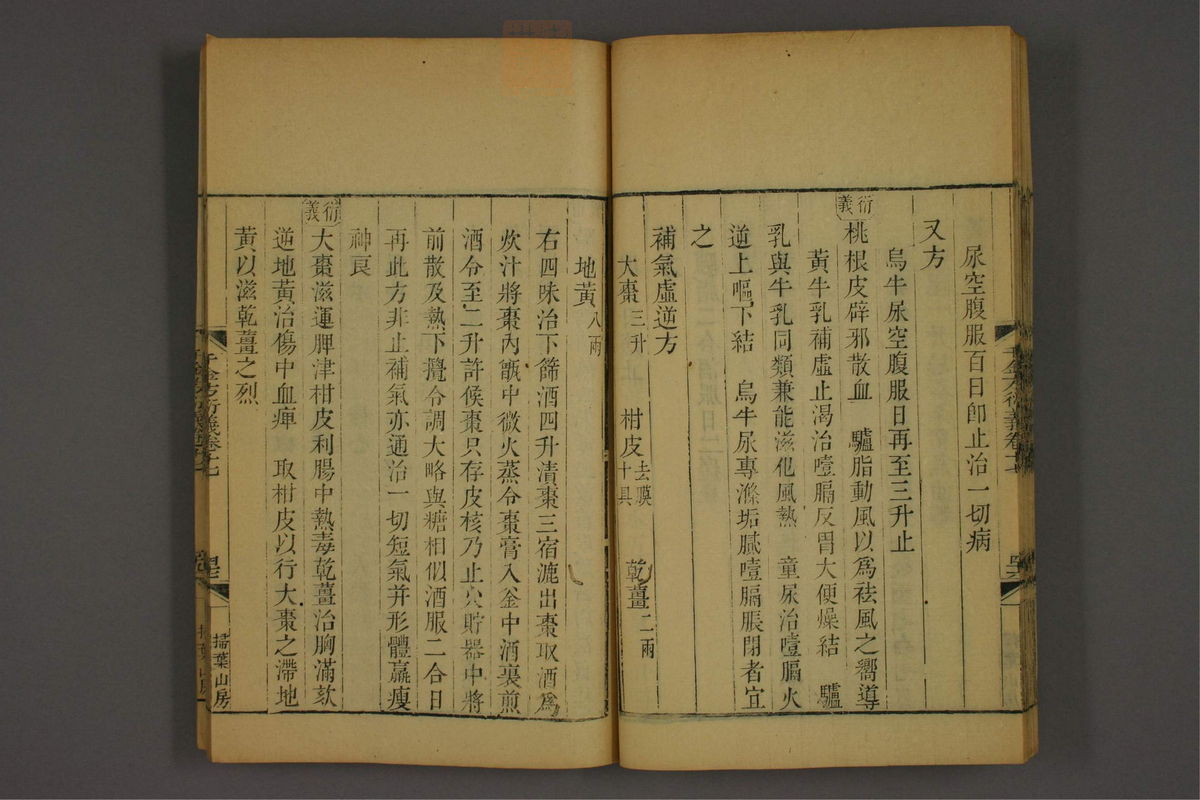 尿空腹服百日卽止治一切病
又方
烏牛尿空腹服日再至三升止
衍義
桃根皮辟邪散血　驢脂動風以爲祛風之嚮導
黃牛乳補虛止渴治噎膈反胃大便燥結　驢
乳與牛乳同類兼能滋化風熱　童尿治噎膈火
逆上嘔下結　烏牛尿專滌垢膩噎膈脹閉者宜
之
補氣虛逆方
大棗三升　柑皮去膜十具　乾薑二兩
地黃八兩
右四味治下篩酒四升漬棗三宿漉出棗取酒爲
炊汁將棗內甑中微火蒸令棗膏入釜中酒裹煎
酒令至二升許候棗只存皮核乃止以貯器中將
前散及熱下攪令調大略與糖相似酒服二合日
再此方非止補氣亦通治一切短氣并形體羸瘦
神良
衍義
大棗滋運脾津柑皮利腸中熱毒乾薑治胸滿欬
逆地黃治傷中血痺　取柑皮以行大棗之滯地
黃以滋乾薑之烈
千金方衍義卷十七
掃葉山房